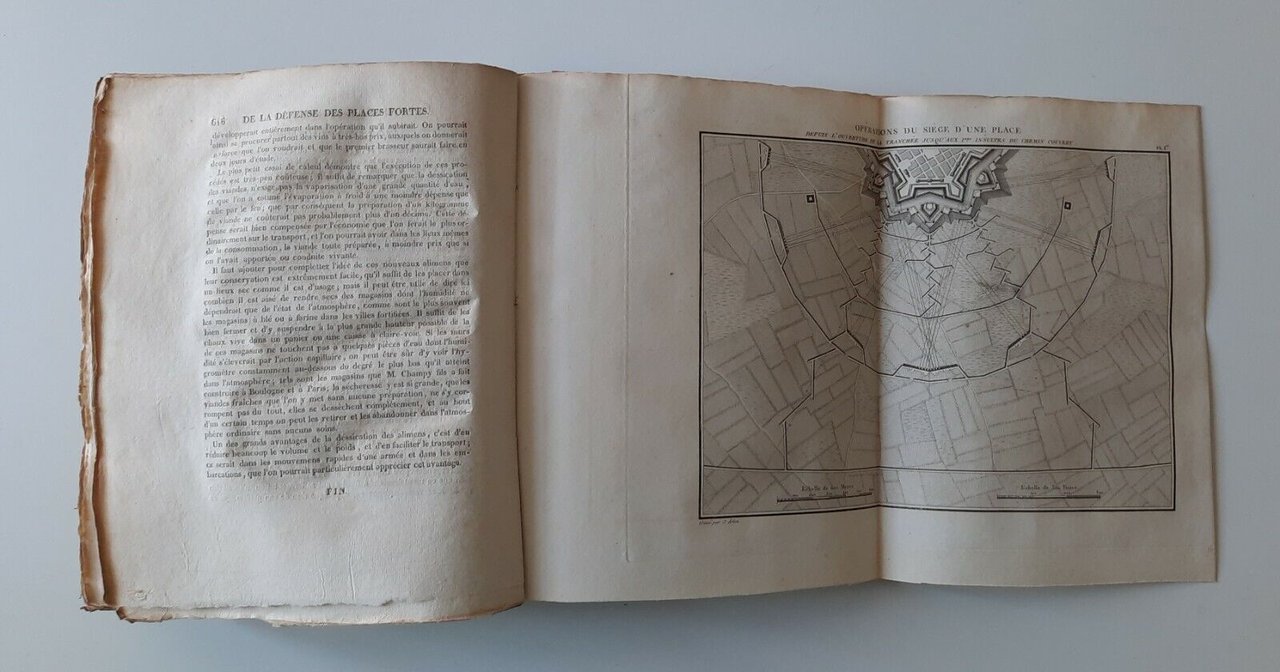 616 DE LA DÉFENSE DES PLACES FORTES.
développerait entièrement dans l'opération qu'il subirait. On pourrait
ainsi se procurer partout des vins à très-bas prix, auxquels on donnerait
la force que l'on voudrait et que le premier brasseur saurait faire en
deux jours d'étude.
Le plus petit essai de calcul démontre que l'exécution de ces pro-
cédés est très-peu coûteuse; il suffit de remarquer que la dessication
des viandes n'exige pas la vaporisation d'une grande quantité d'eau,
et que l'on a estimé l'évaporation à froid à une moindre dépense que
celle par le feu; que par conséquent la préparation d'un kilogramme
de viande ne coûterait pas probablement plus d'un décime. Cette dé-
pense serait bien compensée par l'économie que l'on ferait le plus or-
dinairement sur le transport, et l'on pourrait avoir dans les lieux mêmes
de la consommation, la viande toute préparée, à moindre prix que si
on l'avait apportée ou conduite vivante.
Il faut ajouter pour compléter l'idée de ces nouveaux alimens que
leur conservation est extrêmement facile, qu'il suffit de les placer dans
un lieux sec comme il est d'usage; mais il peut être utile de dire ici
combien il est aisé de rendre secs des magasins dont l'humidité ne
dépendrait que de l'état de l'atmosphère, comme sont le plus souvent
les magasins à blé ou à farine dans les villes fortifiées. Il suffit de les
bien fermer et d'y suspendre à la plus grande hauteur possible de la
chaux vive dans un panier ou une caisse à claire-voie. Si les murs
de ces magasins ne touchent pas à quelques pièces d'eau dont l'humi-
dité s'éleverait par l'action capillaire, on peut être sûr d'y voir l'hy-
gromètre constamment au-dessous du degré le plus bas qu'il atteint
dans l'atmosphère; tels sont les magasins que M. Champy fils a fait
construire à Boulogne et à Paris; la sécheresse y est si grande, que les
viandes fraîches que l'on y met sans aucune préparation, ne s'y cor-
rompent pas du tout, elles se dessèchent complètement, et au bout
d'un certain temps on peut les retirer et les abandonner dans l'atmos-
phère ordinaire sans aucuns soins.
Un des grands avantages de la dessication des alimens, c'est d'en
réduire beaucoup le volume et le poids, et d'en faciliter le transport;
ce serait dans les mouvemens rapides d'une armée et dans les em-
barcations, que l'on pourrait particulièrement apprécier cet avantage.
FIN
OPÉRATIONS DU SIÈGE D'UNE PLACE
DEPUIS L'OUVERTURE DE LA TRANCHÉE JUSQU'AUX INSULTES DU CHEMIN COUVERT
Echelle de
Echelle de